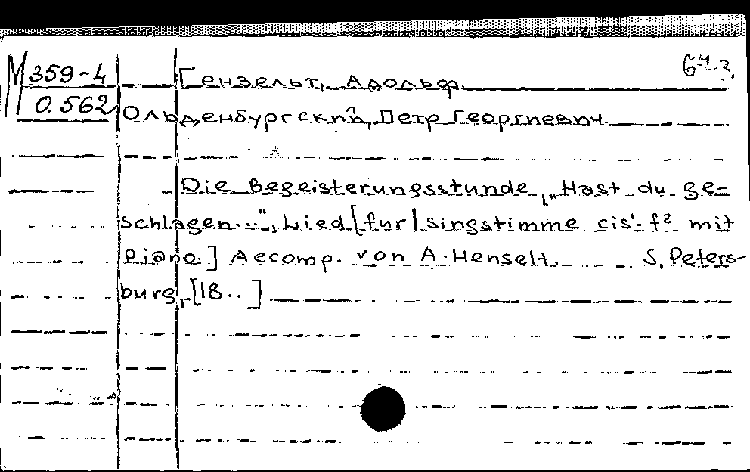 М 359-4
0.562
Гензельт, Адольф
Ольденбургский, Петр Георгиевич
Die Begeisterungsstunde, „Hast du ge=
schlagen...", Lied [für] singstimme cis'-f² mit
Piano] Accomp. von A. Henselt. S. Peters-
burg, [18..]